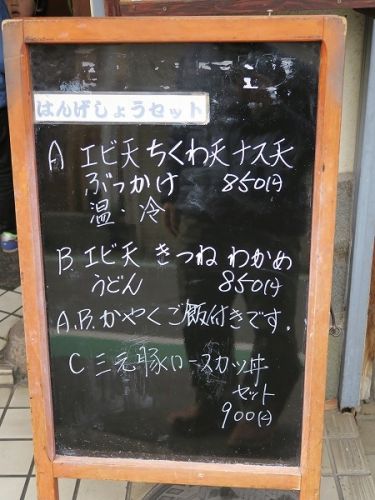 はんげしょうセット
A エビ天 ちくわ天 ナス天
ぶっかけ 850円
温・冷
B. エビ天 きつね わかめ
うどん 850円
A.B. かやくご飯付きです.
C 三元豚ロースカツ丼
セット
900円